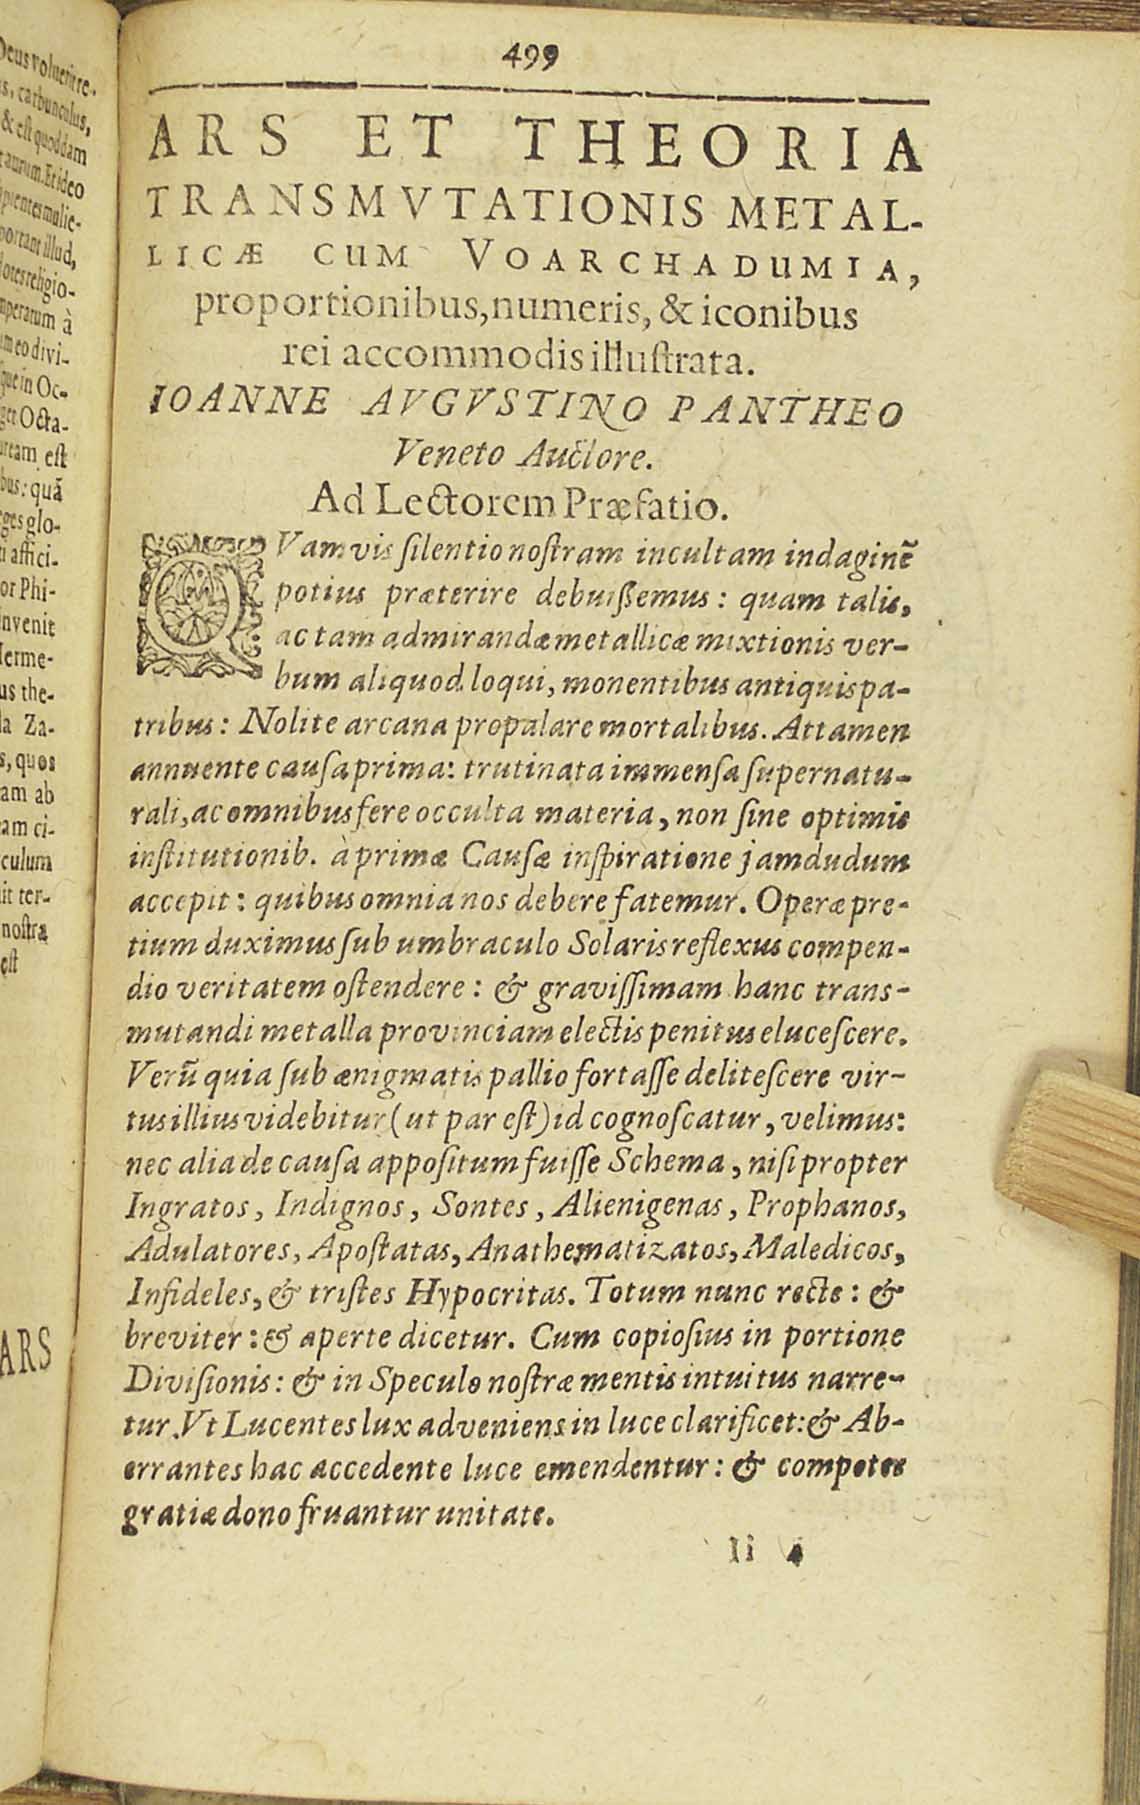 Deus voluerit re-
carbunculus,
& est quoddam
aurum. Et ideo
portant illud,
religio-
à
eo divi-
que in Oc-
Octa-
est
bus: quā
ges glo-
affici-
or Phi-
nvenit
Herme-
us the-
la Za-
s, quos
am ab
am ci-
culum
it ter-
nostra
est
ARS
499
ARS ET THEORIA
TRANSMVTATIONIS METAL-
LICÆ CUM VOARCHADUMIA,
proportionibus, numeris, & iconibus
rei accommodis illustrata.
IOANNE AVGVSTINO PANTHEO
Veneto Auctore.
Ad Lectorem Præfatio.
QVamvis silentio nostram incultam indaginē
potius præterire debuissemus: quam talis,
ac tam admirandæ metallicæ mixtionis ver-
bum aliquod loqui, monentibus antiquis pa-
tribus: Nolite arcana propalare mortalibus. Attamen
annuente causa prima: trutinata immensa supernatu-
rali, ac omnibus fere occulta materia, non sine optimis
institutionib. à primæ Causæ inspiratione jamdudum
accepit: quibus omnia nos debere fatemur. Operæ pre-
tium duximus sub umbraculo Solaris reflexus compen-
dio veritatem ostendere: & gravissimam hanc trans-
mutandi metalla provinciam electis penitus elucescere.
Verū quia sub ænigmatis pallio fortasse delitescere vir-
tus illius videbitur (ut par est) id cognoscatur, velimus:
nec alia de causa appositum fuisse Schema, nisi propter
Ingratos, Indignos, Sontes, Alienigenas, Prophanos,
Adulatores, Apostatas, Anathematizatos, Maledicos,
Infideles, & tristes Hypocritas. Totum nunc recte: &
breviter: & aperte dicetur. Cum copiosius in portione
Divisionis: & in Speculo nostræ mentis intuitus narre-
tur. Vt Lucentes lux adveniens in luce clarificet: & Ab-
errantes hac accedente luce emendentur: & compotes
gratiæ dono fruantur unitate.
Ii 4